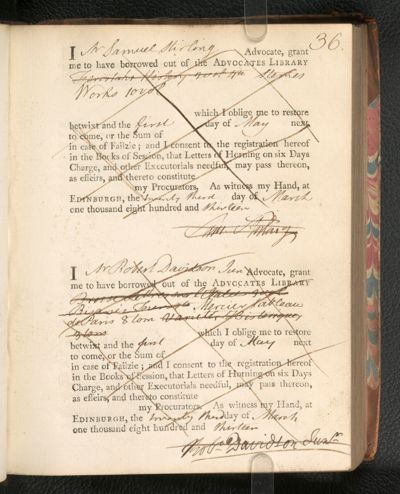 36.
I Mr Samuel Stirling Advocate, grant
me to have borrowed out of the ADVOCATES LIBRARY
Works 10 vol
which I oblige me to restore
betwixt and the first day of May next
to come, or the Sum of
in case of Failzie; and I consent to the registration hereof
in the Books of Session, that Letters of Horning on six Days
Charge, and other Executorials needful, may pass thereon,
as effeirs, and thereto constitute
my Procurators. As witness my Hand, at
EDINBURGH, the twenty third day of March
one thousand eight hundred and thirteen
Sam Stirling
I Mr Robert Davidson Junr Advocate, grant
me to have borrowed out of the ADVOCATES LIBRARY
Mercier Tableau
de Paris 8 tom
which I oblige me to restore
betwixt and the first day of May next
to come, or the Sum of
in case of Failzie; and I consent to the registration hereof
in the Books of Session, that Letters of Horning on six Days
Charge, and other Executorials needful, may pass thereon,
as effeirs, and thereto constitute
my Procurators. As witness my Hand, at
EDINBURGH, the twenty third day of March
one thousand eight hundred and thirteen
Robt. Davidson Junr.